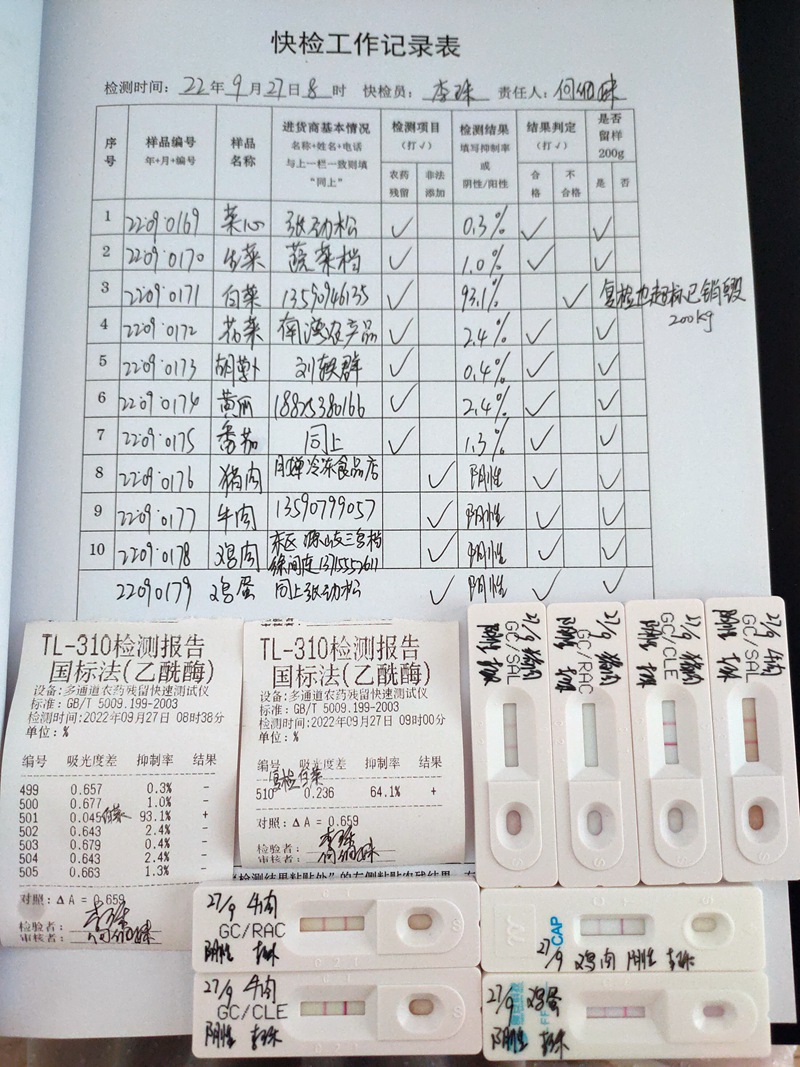 快检工作记录表
检测时间: 22年9月27日8时 快检员: 李珠 责任人:
序号 样品编号 年+月+编号 样品名称 进货商基本情况 名称+姓名+电话 与上一栏一致则填“同上” 检测项目(打√) 农药残留 非法添加 检测结果 填写抑制率或阴性/阳性 结果判定(打√) 合格 不合格 是否留样200g 是 否
1 2209·0169 菜心 张劲松 √ 0.3% √ √
2 2209·0170 生菜 蔬菜档 √ 1.0% √ √
3 2209·0171 白菜 13590946135 √ 93.1% √ 复检也超标已销毁 200kg
4 2209·0172 花菜 农产品 √ 2.4% √ √
5 2209·0173 胡萝卜 刘轶群 √ 0.4% √ √
6 2209·0174 黄瓜 18825380166 √ 2.4% √ √
7 2209·0175 番茄 同上 √ 1.3% √ √
8 2209·0176 猪肉 冷冻食品店 √ 阴性 √ √
9 2209·0177 牛肉 13590799057 √ 阴性 √ √
10 2209·0178 鸡肉 东区 √ 阴性 √ √
22090179 鸡蛋 同上张劲松 √ 阴性 √ √
TL-310检测报告
国标法(乙酰酶)
设备:多通道农药残留快速测试仪
标准: GB/T 5009.199-2003
检测时间:2022年09月27日 08时38分
单位: %
编号 吸光度差 抑制率 结果
499 0.657 0.3% -
500 0.677 1.0% -
501 0.045 白菜 93.1% +
502 0.643 2.4% -
503 0.679 0.4% -
504 0.643 2.4% -
505 0.663 1.3% -
对照: ΔA = 0.659
检验者: 李珠
审核者:
TL-310检测报告
国标法(乙酰酶)
设备:多通道农药残留快速测试仪
标准: GB/T 5009.199-2003
检测时间:2022年09月27日 09时00分
单位: %
编号 吸光度差 抑制率 结果
复检白菜
510 0.236 64.1% +
对照: ΔA = 0.659
检验者: 李珠
审核者:
27/9 猪肉
GC/SAL
阴性 李珠
27/9 猪肉
GC/RAC
阴性 李珠
27/9 猪肉
GC/CLE
阴性 李珠
27/9 牛肉
GC/SAL
阴性 李珠
27/9 牛肉
GC/RAC
阴性 李珠
CAP
27/9 鸡肉 阴性 李珠
27/9 牛肉
GC/CLE
阴性 李珠
27/9 鸡蛋
阴性 李珠